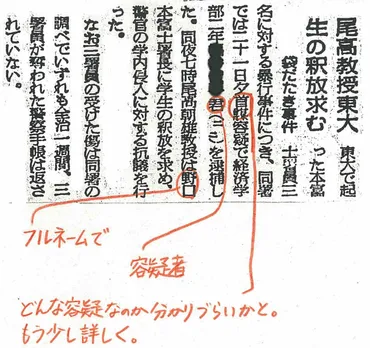 尾高教授東大
生の釈放求む
袋だたき事件
東大で起
った本富
士署員三
名に対する暴行事件につき、同署
では二十一日夕首謀容疑で経済学
部二年
君(二一)を逮捕し
た。同夜七時尾高朝雄教授は野口
本富士署長に学生の釈放を求め、
警官の学内侵入に対する抗議を行
った。
なお三署員の受けた傷は同署の
調べでいずれも全治一週間。三
署員が奪われた警察手帳は返さ
れていない。
フルネームで
容疑者
どんな容疑なのか分かりづらいかと。
もう少し詳しく。